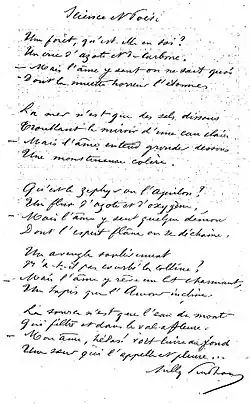 Science et Poésie
Un foret, qu'est-elle en soi ?
Un cric d'azote et de carbone.
— Mais l'âme y sent on ne sait quoi
Dont la muette horreur l'étonne.
La mer n'est que des sels dissous
Troublant le miroir d'une eau claire.
— Mais l'âme entend gronder dessous
Une monstrueuse colère.
Qu'est-ce zéphyr ou l'aquilon ?
Un flux d'azote et d'oxygène,
— Mais l'âme y sent quelque démon
Dont l'esprit flâne ou se déchaîne.
Un aveugle
N'a-t-il pas courbé la colline ?
— Mais l'âme y rêve un lit charmant,
Un tapis que l'Amour incline.
La source n'est que l'eau du mont
Qui filtre et dans le val affleure.
— Mon âme, hélas ! voit luire au fond
Une sœur qui l'appelle et pleure...
Sully Prudhomme